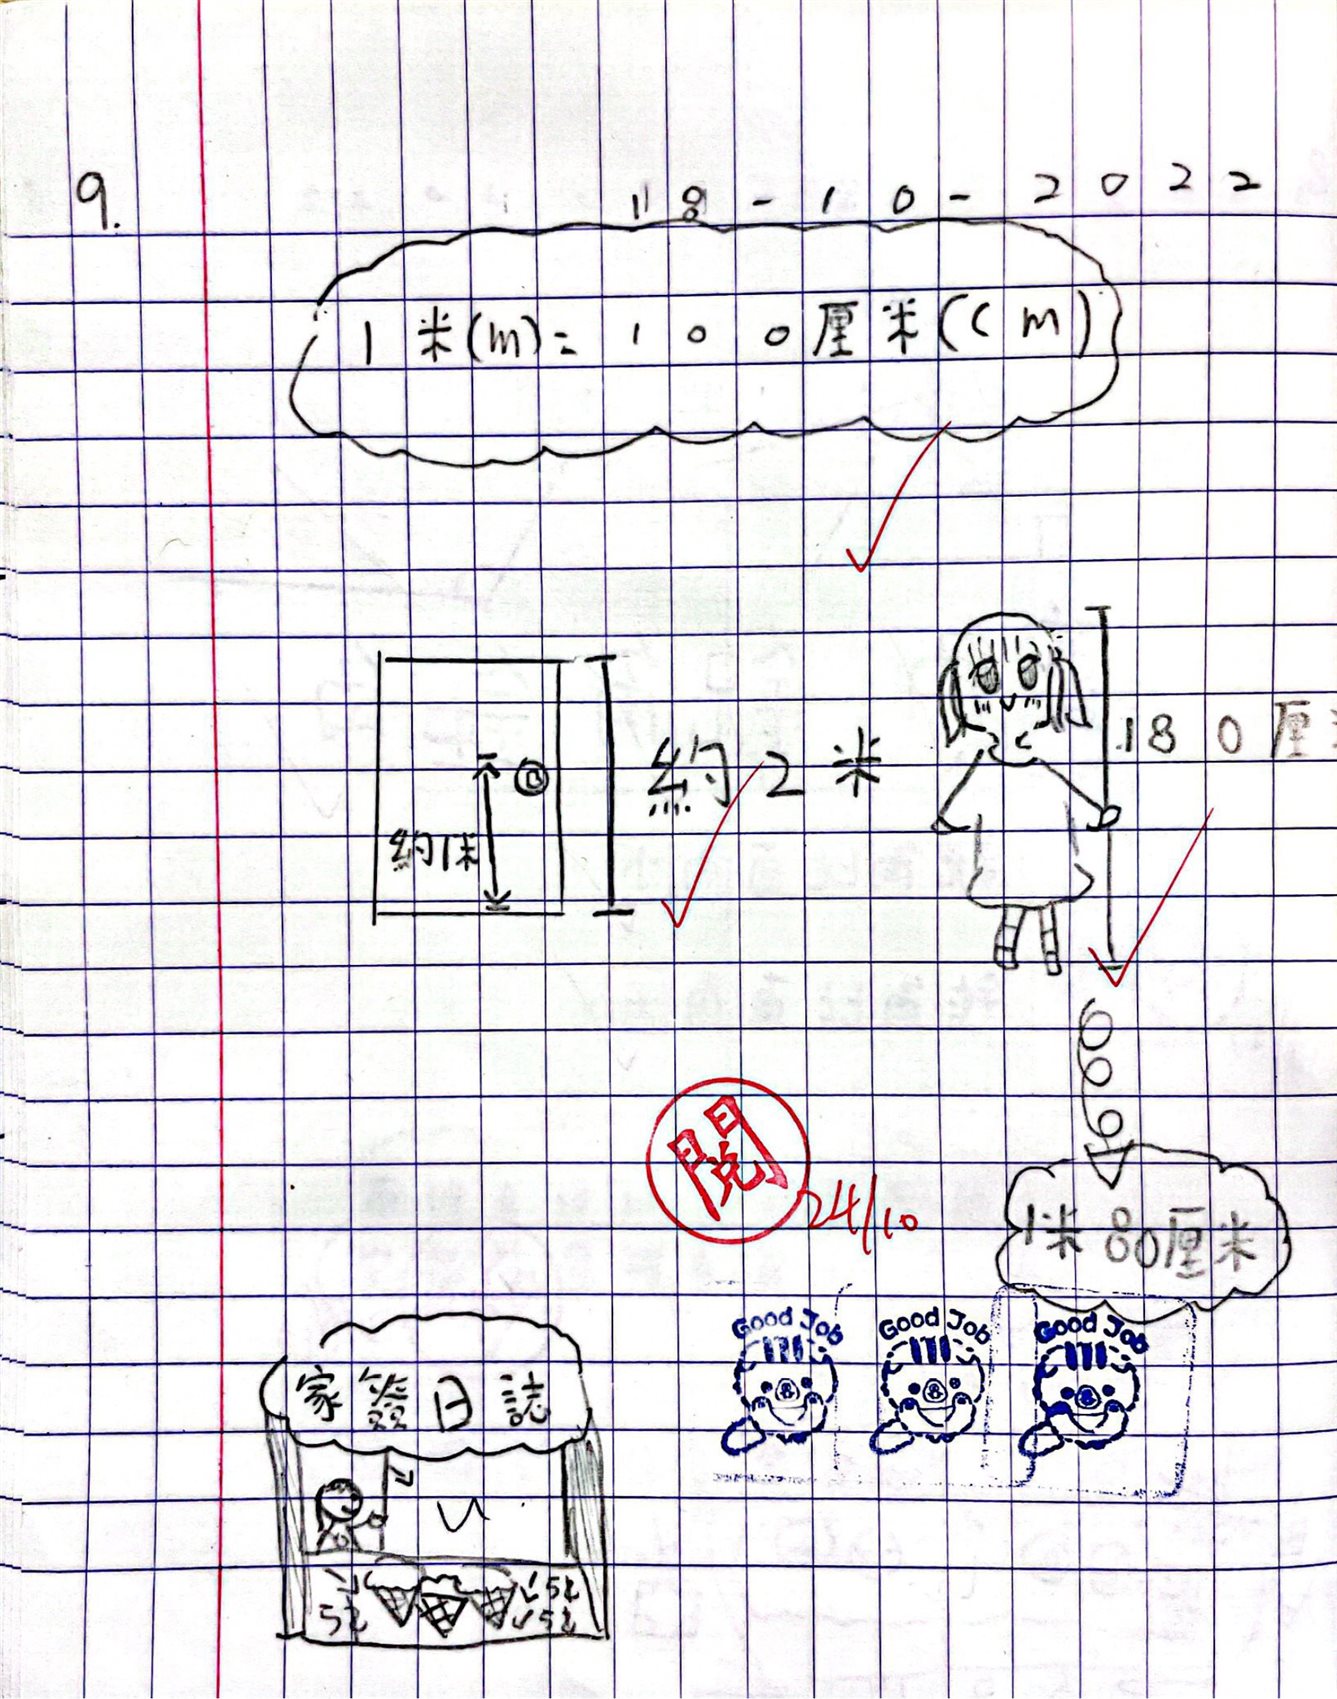 9.
18-10-2022
1米(m)=100厘米(cm)
180厘
約2米
約1米
閱
24/10
1米80厘米
Good Job Good Job Good Job
家簽日誌